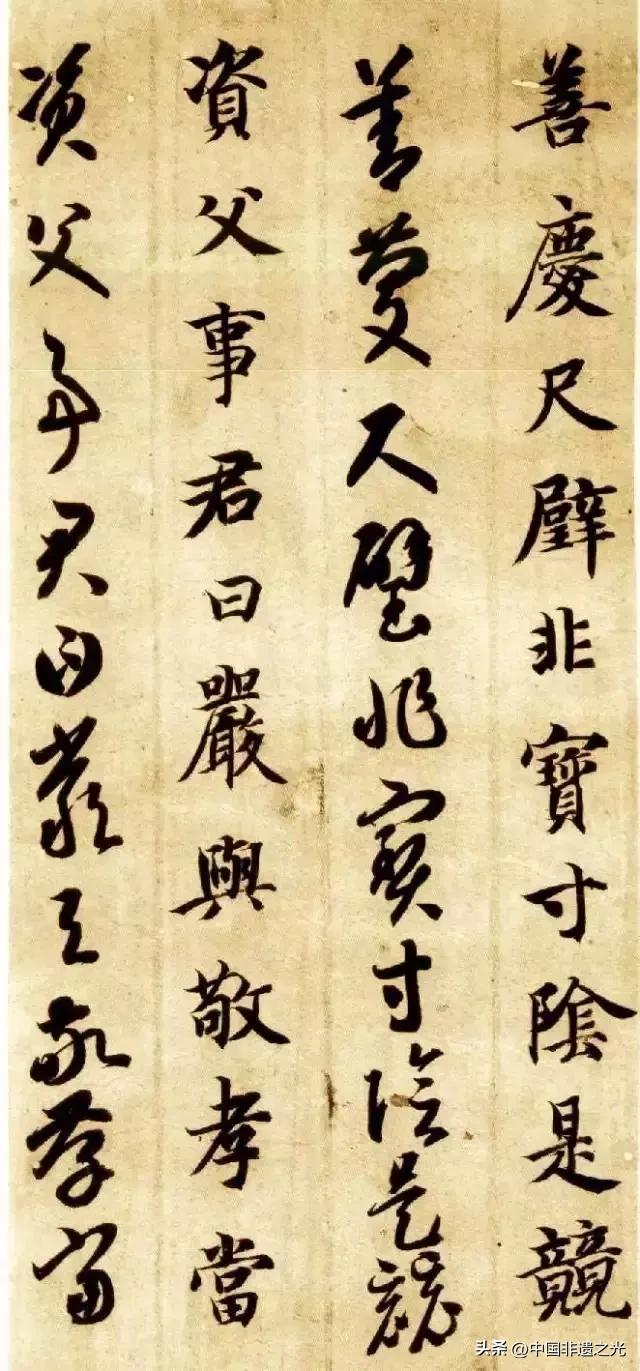 善慶尺璧非寶寸陰是競
善慶尺璧非寶寸陰是競
資父事君曰嚴與敬孝當
資父事君曰嚴與敬孝當
头条 @中国非遗之光